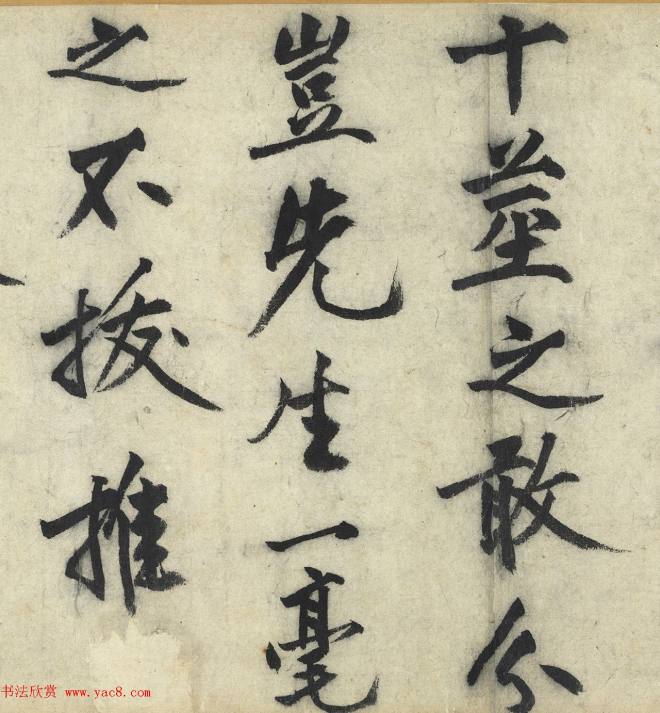 十莖之敢分
豈先生一毫
之不拔推
书法欣赏 www.yac8.com